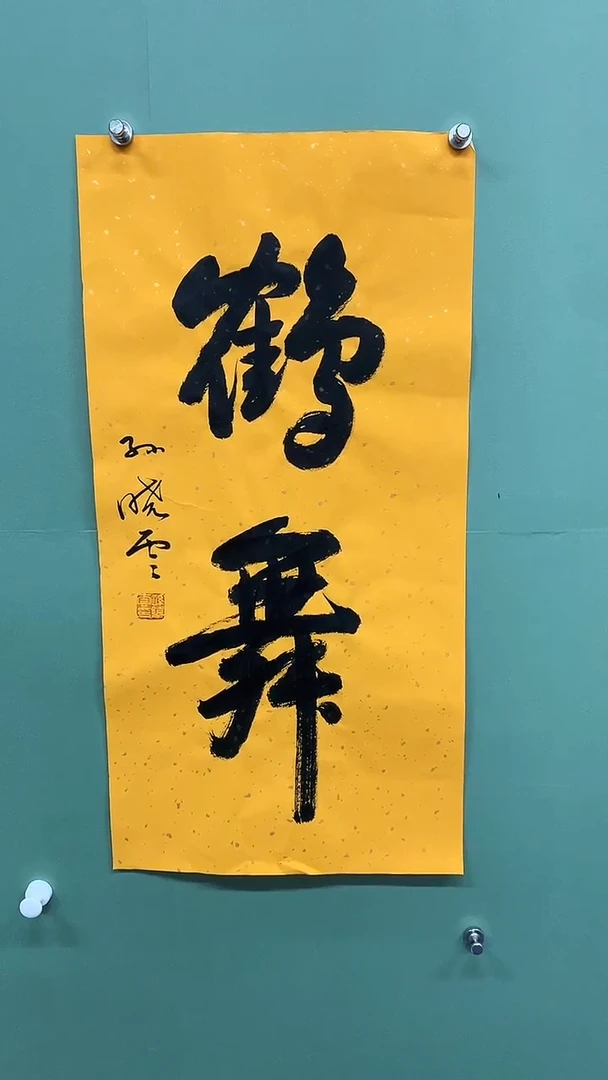 鹤舞
孙晓云